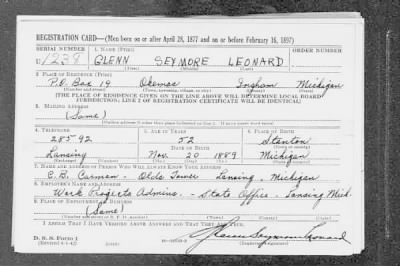 REGISTRATION CARD—(Men born on or after April 28, 1877 and on or before February 16, 1897)
SERIAL NUMBER 1. NAME (Print) ORDER NUMBER
U 1238 GLENN SEYMORE LEONARD
(First) (Middle) (Last)
2. PLACE OF RESIDENCE (Print)
P.O. Box 19 Okemos Ingham Michigan
(Number and street) (Town, township, village, or city) (County) (State)
[THE PLACE OF RESIDENCE GIVEN ON THE LINE ABOVE WILL DETERMINE LOCAL BOARD
JURISDICTION; LINE 2 OF REGISTRATION CERTIFICATE WILL BE IDENTICAL]
3. MAILING ADDRESS
(Same)
[Mailing address if other than place indicated on line 2. If same insert word same]
4. TELEPHONE 5. AGE IN YEARS 6. PLACE OF BIRTH
28592 52 Stanton
DATE OF BIRTH
Lansing Nov. 20 1889 Michigan
(Exchange) (Number) (Mo.) (Day) (Yr.) (State or country)
7. NAME AND ADDRESS OF PERSON WHO WILL ALWAYS KNOW YOUR ADDRESS
C.B. Carmen - Olds Tower Lansing, Michigan
8. EMPLOYER'S NAME AND ADDRESS
Work Projects Admins. - State Office - Lansing Mich.
9. PLACE OF EMPLOYMENT OR BUSINESS
(Same)
(Number and street or R. F. D. number) (Town) (County) (State)
I AFFIRM THAT I HAVE VERIFIED ABOVE ANSWERS AND THAT THEY ARE TRUE.
D. S. S. Form 1
(Revised 4-1-42)
Glenn Seymore Leonard